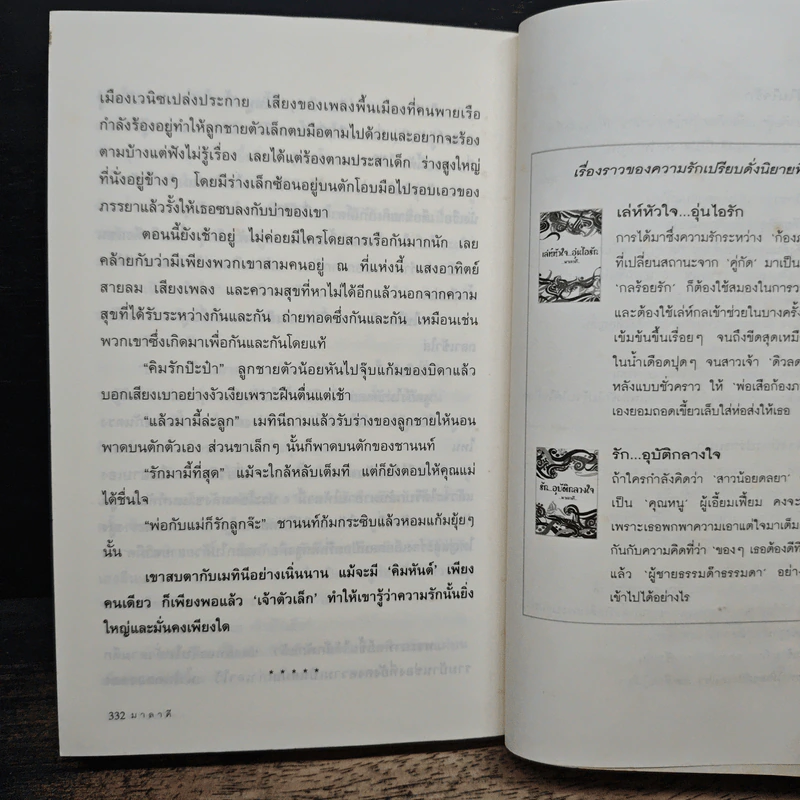 เมืองเวนิซเปล่งประกาย เสียงของเพลงพื้นเมืองที่คนพายเรือ
กำลังร้องอยู่ทำให้ลูกชายตัวเล็กตบมือตามไปด้วยและอยากจะร้อง
ตามบ้างแต่ฟังไม่รู้เรื่อง เลยได้แต่ร้องตามประสาเด็ก ร่างสูงใหญ่
ที่นั่งอยู่ข้างๆ โดยมีร่างเล็กซ้อนอยู่บนตักโอบมือไปรอบเอวของ
ภรรยาแล้วรั้งให้เธอซบลงกับบ่าของเขา
ตอนนี้ยังเช้าอยู่ ไม่ค่อยมีใครโดยสารเรือกันมากนัก เลย
คล้ายกับว่ามีเพียงพวกเขาสามคนอยู่ ณ ที่แห่งนี้ แสงอาทิตย์
สายลม เสียงเพลง และความสุขที่หาไม่ได้อีกแล้วนอกจากความ
สุขที่ได้รับระหว่างกันและกัน ถ่ายทอดซึ่งกันและกัน เหมือนเช่น
พวกเขาซึ่งเกิดมาเพื่อกันและกันโดยแท้
“คิมรักป๊ะป๋า” ลูกชายตัวน้อยหันไปจุ๊บแก้มของบิดาแล้ว
บอกเสียงเบาอย่างงัวเงียเพราะฝืนตื่นแต่เช้า
“แล้วมามี้ล่ะลูก” เมทินีถามแล้วรับร่างของลูกชายให้นอน
พาดบนตักตัวเอง ส่วนขาเล็กๆ นั้นก็พาดบนตักของชานนท์
“รักมามี้ที่สุด” แม้จะใกล้หลับเต็มที แต่ก็ยังตอบให้คุณแม่
ได้ชื่นใจ
“พ่อกับแม่ก็รักลูกจ๊ะ” ชานนท์ก้มกระซิบแล้วหอมแก้มยุ้ยๆ
นั้น
เขาสบตากับเมทินีอย่างเนิ่นนาน แม้จะมี ‘คิมหันต์’ เพียง
คนเดียว ก็เพียงพอแล้ว ‘เจ้าตัวเล็ก’ ทำให้เขารู้ว่าความรักนั้นยิ่ง
ใหญ่และมั่นคงเพียงใด
* * * * *
332 มาลาคี
เรื่องราวของความรักเปรียบดั่งนิยาย
เล่ห์หัวใจ...อุ่นไอรัก
การได้มาซึ่งความรักระหว่าง ‘ก้อง
ที่เปลี่ยนสถานะจาก ‘คู่กัด’ มาเป็น
‘กลร้อยรัก’ ก็ต้องใช้สมองในการว
และต้องใช้เล่ห์กลเข้าช่วยในบางครั้ง
เข้มข้นขึ้นเรื่อยๆ จนถึงขีดสุดเหมื
ในน้ำเดือดปุดๆ จนสาวเจ้า ‘ดิวลด
หลังแบบชั่วคราว ให้ ‘พ่อเสือก้องภ
เองยอมถอดเขี้ยวเล็บใส่ห่อส่งให้เธอ
เล่ห์หัวใจ..อุ่นไอรัก
รัก...อุบัติกลางใจ
ถ้าใครกำลังคิดว่า ‘สาวน้อยดลยา’
เป็น ‘คุณหนู’ ผู้เอี้ยมเฟี้ยม คงจะ
เพราะเธอพกพาความเอาแต่ใจมาเต็ม
กันกับความคิดที่ว่า ‘ของๆ เธอต้องดีที
แล้ว ‘ผู้ชายธรรมด๊าธรรมดา’ อย่าง
เข้าไปได้อย่างไร
รัก...อุบัติกลางใจ